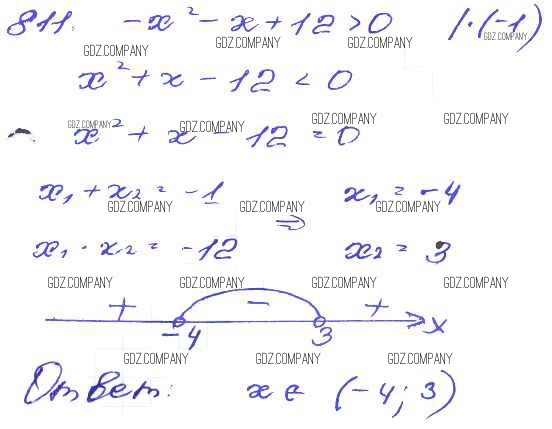 811. -x² - x + 12 > 0 | · (-1)
GDZ.COMPANY GDZ.COMPANY GDZ.COMPANY GDZ.COMPANY
x² + x - 12 < 0
GDZ.COMPANY GDZ.COMPANY GDZ.COMPANY GDZ.COMPANY
x² + x - 12 = 0
x₁ + x₂ = -1 x₁ = -4
GDZ.COMPANY GDZ.COMPANY GDZ.COMPANY
⇒
x₁ · x₂ = -12 x₂ = 3
GDZ.COMPANY GDZ.COMPANY GDZ.COMPANY GDZ.COMPANY
+ - +
-4 3 x
GDZ.COMPANY GDZ.COMPANY GDZ.COMPANY
Ответ: x ∈ (-4; 3)